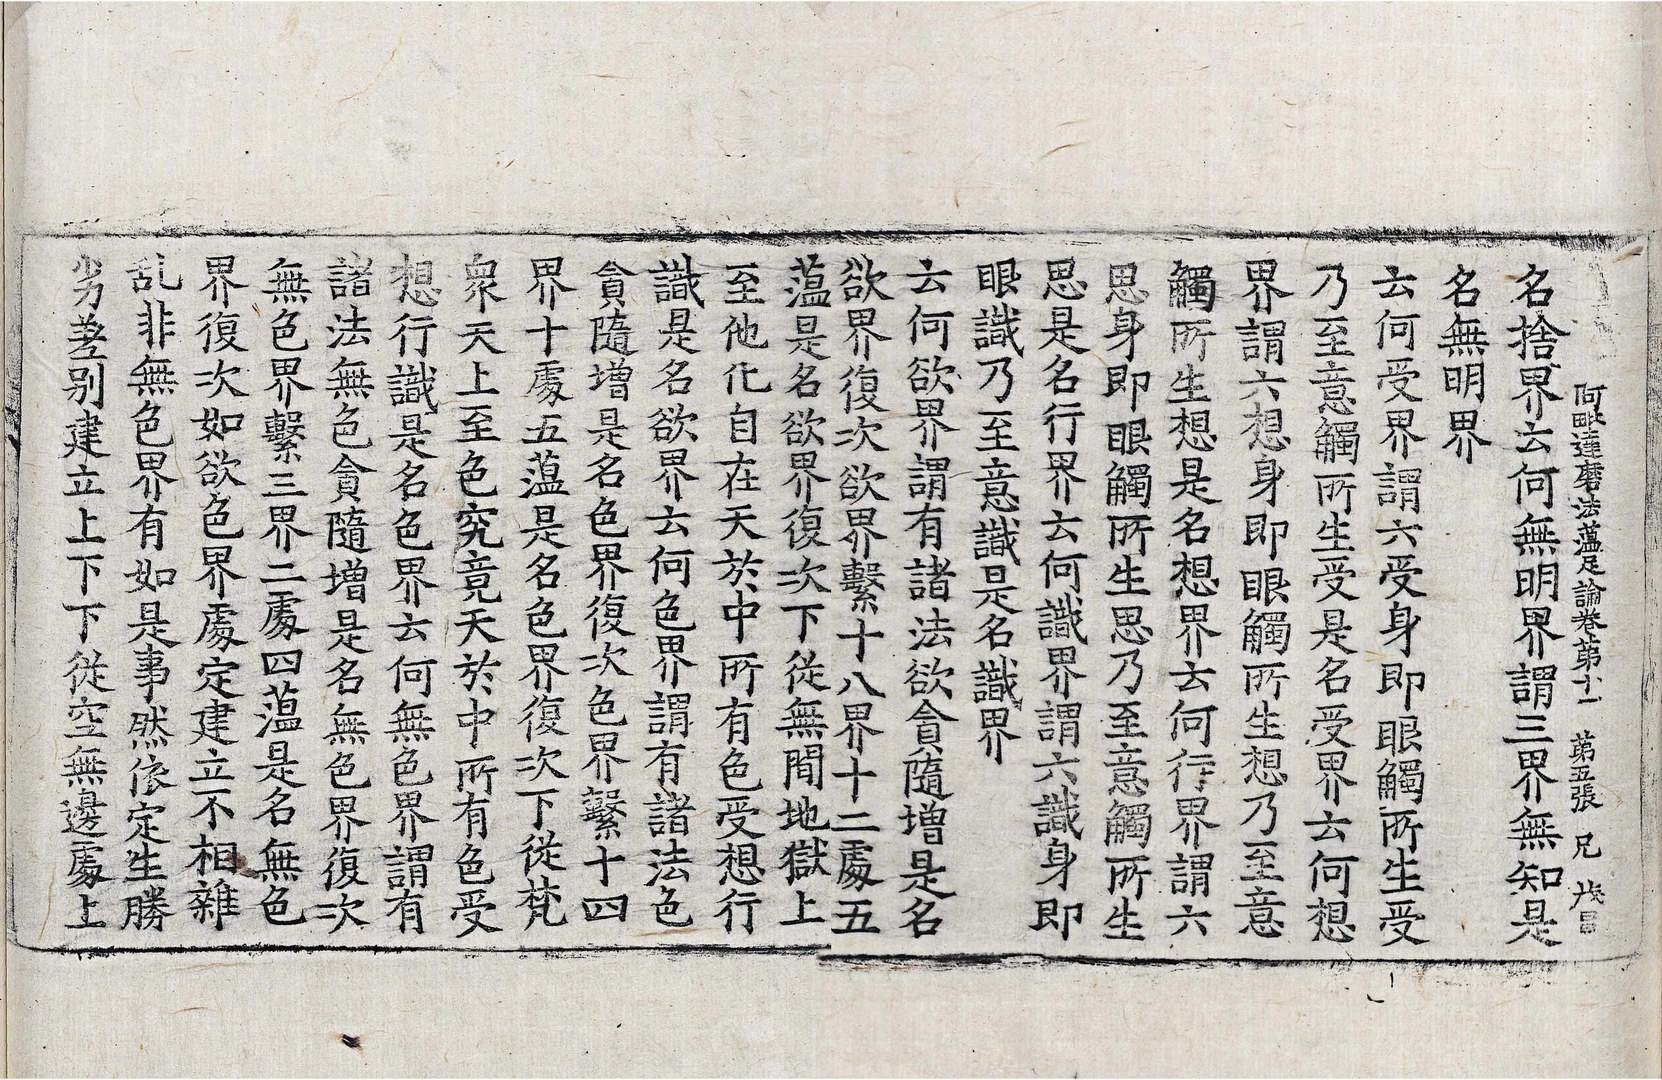 阿毗達磨法蕴足論卷第十一 第五張 兄
名捨界云何無明界謂三界無知是
名無明界
云何受界謂六受身即眼觸所生受
乃至意觸所生受是名受界云何想
界謂六想身即眼觸所生想乃至意
觸所生想是名想界云何行界謂六
思身即眼觸所生思乃至意觸所生
思是名行界云何識界謂六識身即
眼識乃至意識是名識界
云何欲界謂有諸法欲貪隨增是名
欲界復次欲界繫十八界十二處五
蕴是名欲界復次下從無間地獄上
至他化自在天於中所有色受想行
識是名欲界云何色界謂有諸法色
貪隨增是名色界復次色界繫十四
界十處五蕴是名色界復次下從梵
衆天上至色究竟天於中所有色受
想行識是名色界云何無色界謂有
諸法無色貪隨增是名無色界復次
無色界繫三界二處四蕴是名無色
界復次如欲色界處定建立不相雜
乱非無色界有如是事然依定生勝
劣差别建立上下下從空無邊處上